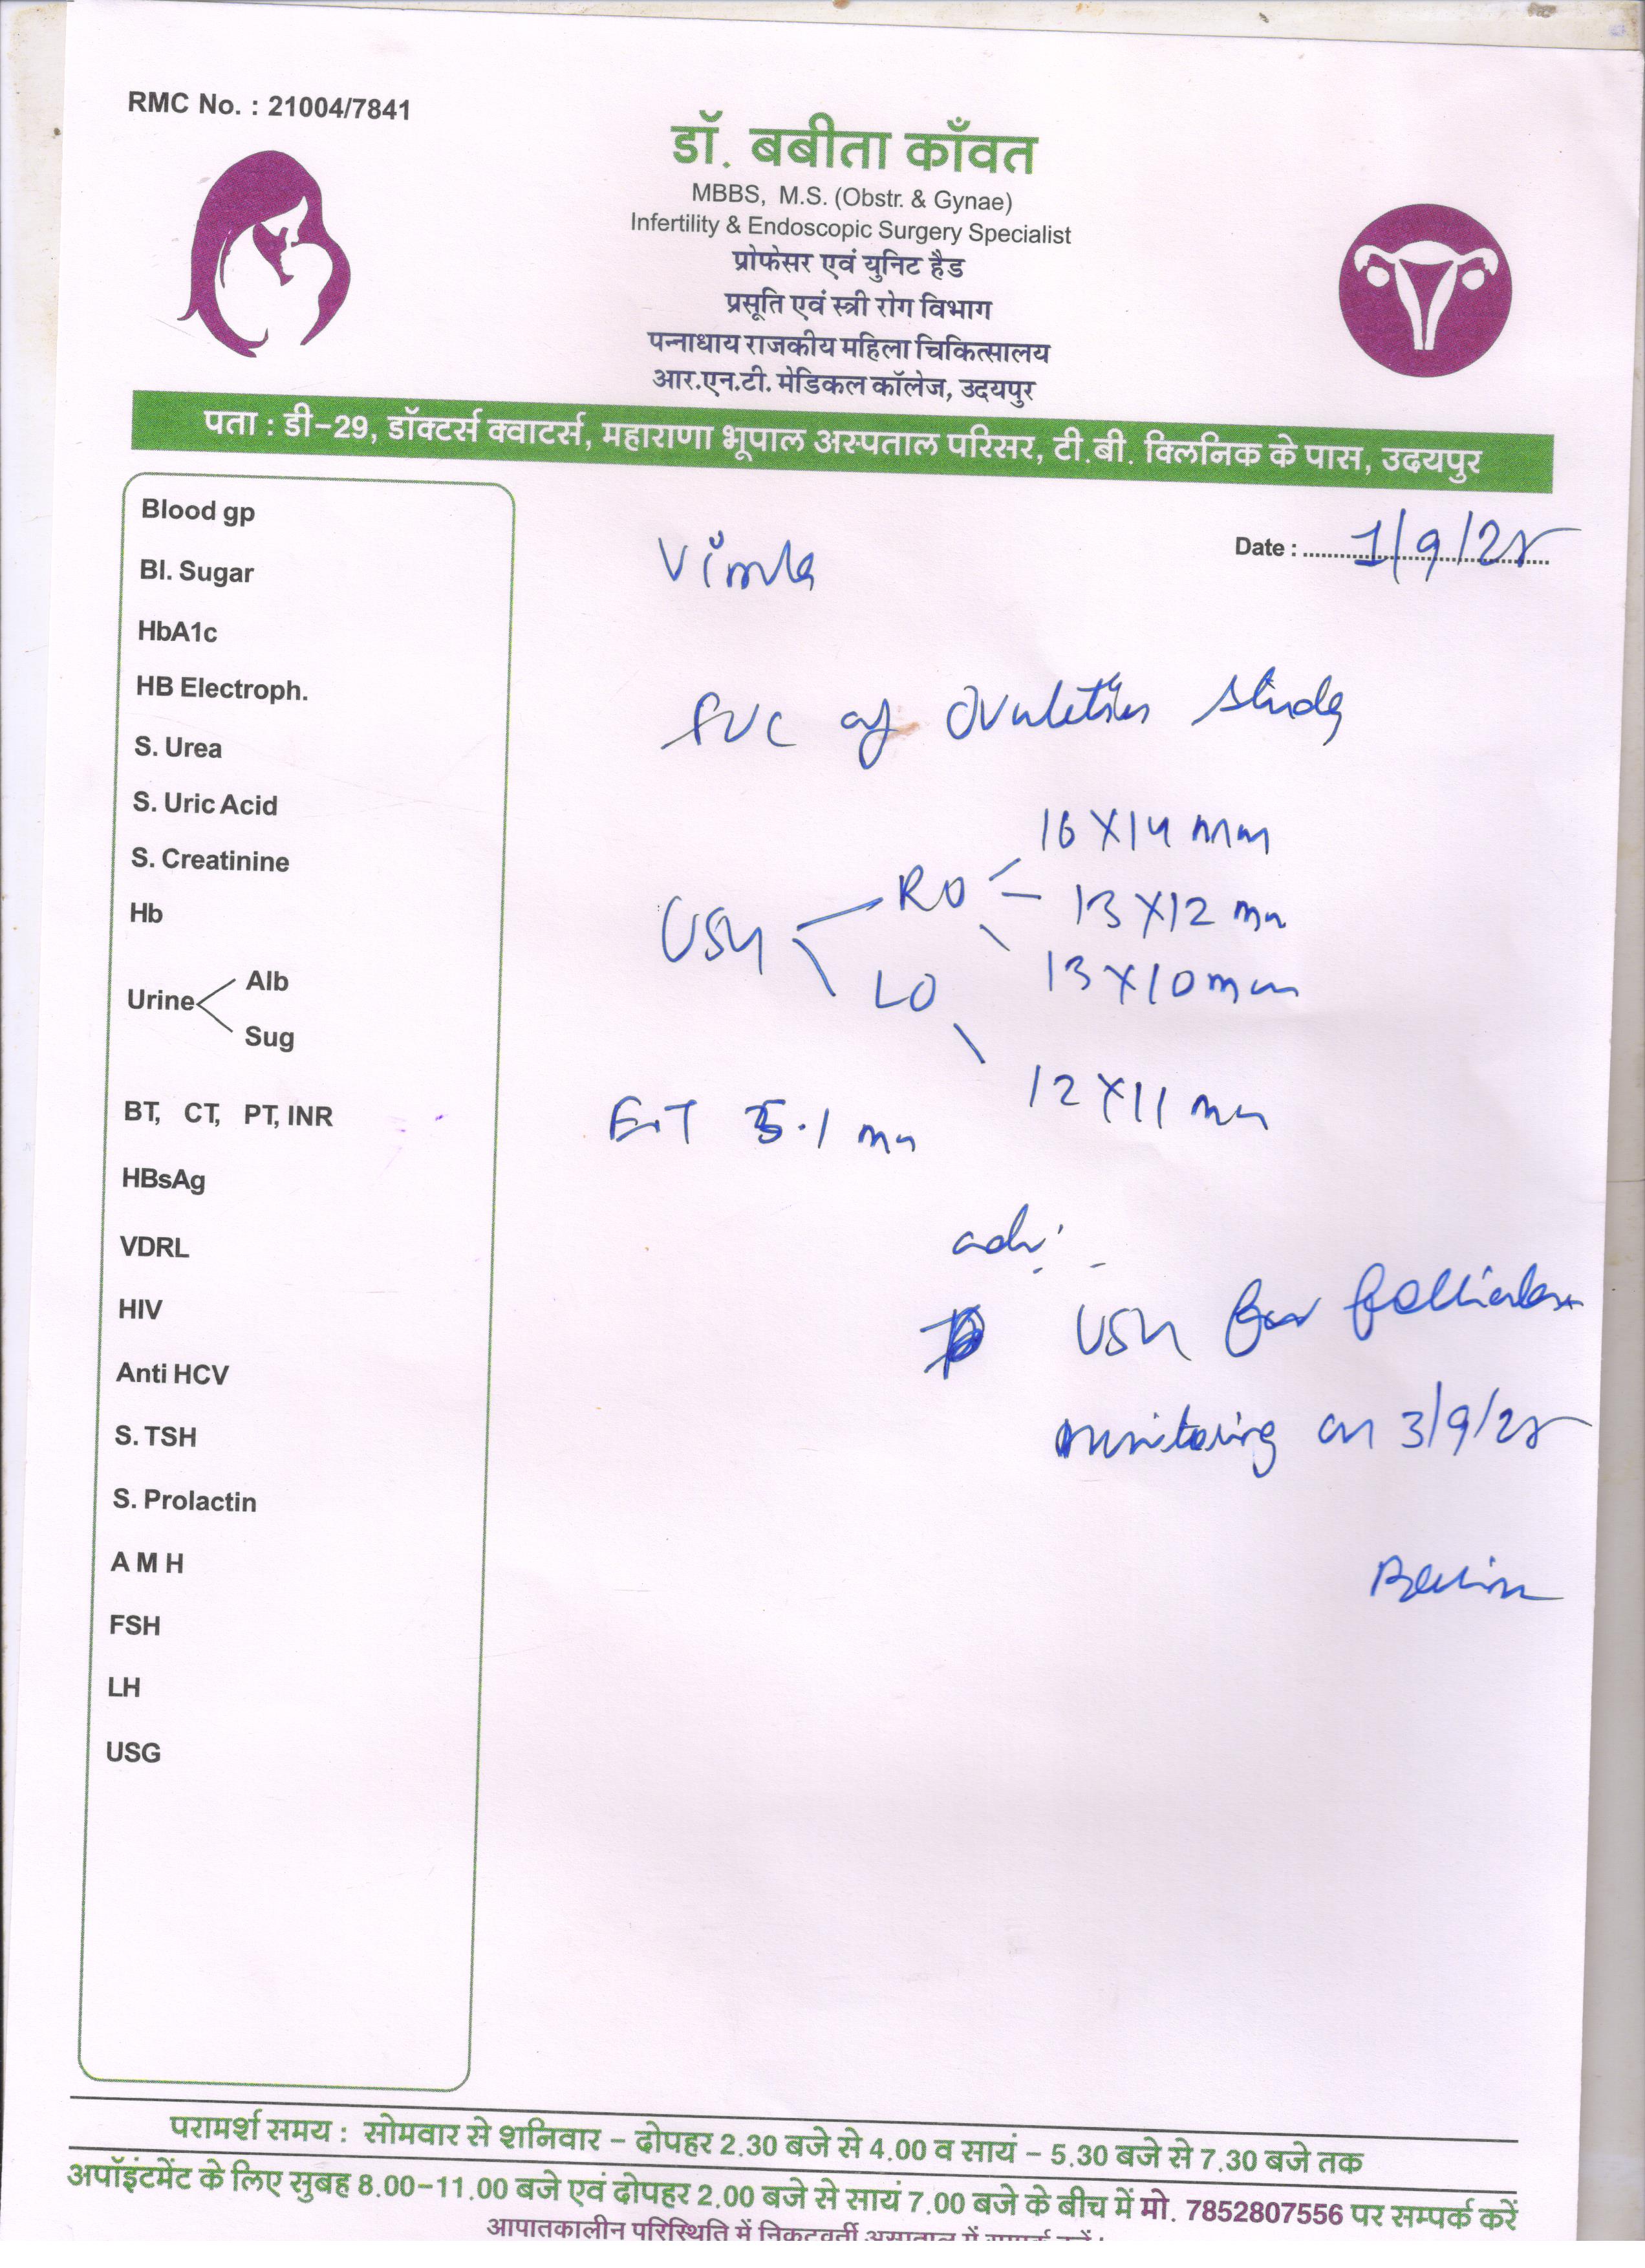 RMC No. : 21004/7841
डॉ. बबीता काँवत
MBBS, M.S. (Obstr. & Gynae)
Infertility & Endoscopic Surgery Specialist
प्रोफेसर एवं युनिट हैड
प्रसूति एवं स्त्री रोग विभाग
पन्नाधाय राजकीय महिला चिकित्सालय
आर.एन.टी. मेडिकल कॉलेज, उदयपुर
पता : डी-29, डॉक्टर्स क्वाटर्स, महाराणा भूपाल अस्पताल परिसर, टी.बी. क्लिनिक के पास, उदयपुर
Blood gp
Bl. Sugar
HbA1c
HB Electroph.
S. Urea
S. Uric Acid
S. Creatinine
Hb
Urine
Alb
Sug
BT, CT, PT, INR
HBsAg
VDRL
HIV
Anti HCV
S. TSH
S. Prolactin
A M H
FSH
LH
USG
Date : 1/9/25
Vimla
of Ovulation study
USG
RO
16X14 mm
13X12 mm
13X10 mm
LO
12X11 mm
E.T 5.1 mm
adv.
USG for follicular
monitoring on 3/9/25
परामर्श समय : सोमवार से शनिवार - दोपहर 2.30 बजे से 4.00 व सायं - 5.30 बजे से 7.30 बजे तक
अपॉइंटमेंट के लिए सुबह 8.00-11.00 बजे एवं दोपहर 2.00 बजे से सायं 7.00 बजे के बीच में मो. 7852807556 पर सम्पर्क करें
आपातकालीन परिस्थिति में निकटवर्ती अस्पताल में सम्पर्क करें।